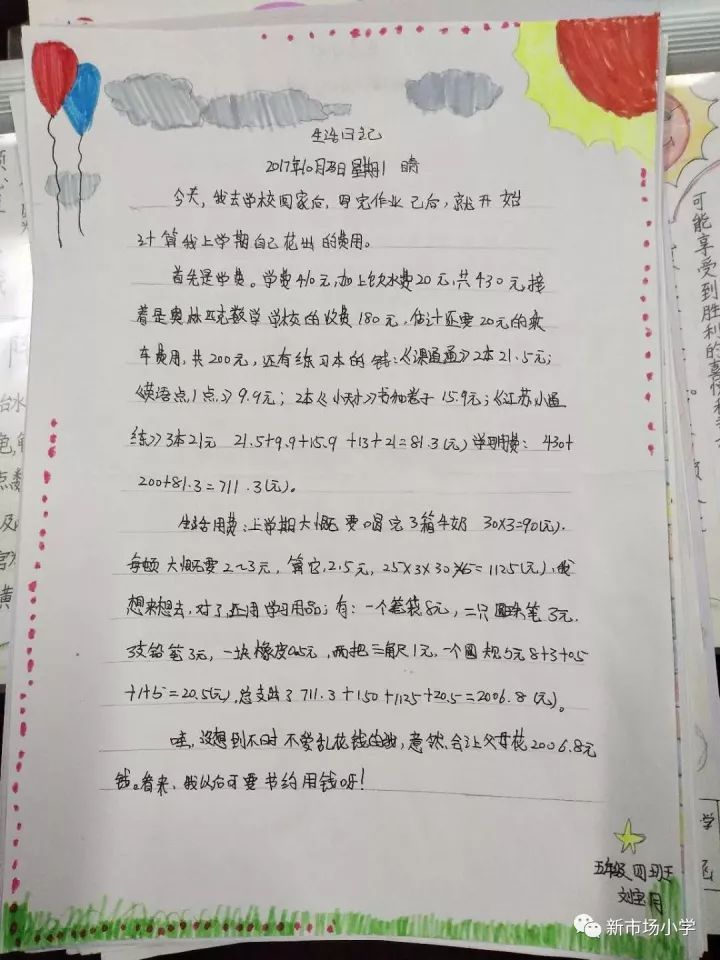 生活日记
2017年10月 日 星期1 晴
今天,我去学校回家后,写完作业已后,就开始
计算我上学期自己花出的费用。
首先是学费。学费410元,加上饮水费20元,共430元,接
着是奥林匹克数学学校的收费180元,估计还要20元的乘
车费用,共200元,还有练习本的钱:《课通通》2本21.5元;
《英语点1点》9.9元;2本《小 》书和卷子15.9元;《江苏小通
练》3本21元 21.5+9.9+15.9+13+21=81.3(元)学习用费: 430+
200+81.3=711.3(元)。
生活用费:上学期大概要喝完3箱牛奶 30×3=90(元).
每顿大概要2~3元,算它,2.5元,2.5×3×30×5=1125(元),我
想来想去,对了,还用学习用品;有:一个笔袋8元,二只圆珠笔3元.
3支铅笔3元,一块橡皮0.5元,两把三角尺1元,一个圆规5元8+3+0.5
+1+5=20.5(元),总支出了711.3+150+1125+20.5=2006.8(元)。
哇,没想到不时不爱乱花钱的我,竟然会让父母花2006.8元
钱。看来,我以后可要节约用钱呀!
五年级四班
刘宝月
新市场小学
可能享受到胜利的喜悦
学